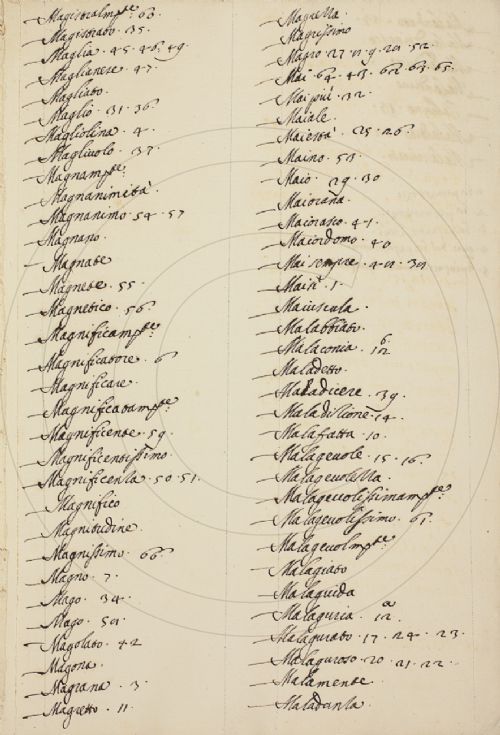 Magistralm.te 63.
Magistrato. 35.
Maglia. 45. 46. 49.
Maglianese. 47.
Magliato.
Maglio. 31. 36
Magliolina. 4.
Magliuolo. 37.
Magnam.te
Magnanimità.
Magnanimo. 54. 57
Magnano.
Magnate
Magnete. 55.
Magnetico. 56.
Magnificam.te
Magnificatore. 6
Magnificare.
Magnificatam.te
Magnificente. 59.
Magnificentissimo.
Magnificenza. 50. 51.
Magnifico
Magnitudine.
Magnissimo. 66.
Magno. 7.
Mago. 34.
Mago.
Magolato. 42
Magona.
Magrana. 3.
Magretto. 11.
Magrezza.
Magrissimo
Magro.
Mai. 64.
Mai più. 32.
Maiale.
Maiestà. 25. 26.
Maino.
Maio. 29. 30
Maiorana.
Maiorasco. 41.
Maiordomo. 40
Mai sempre.
Maisì. 1.
Maiuscula.
Malabbiato.
Malaconia.
Maladetto.
Maladicere. 39.
Maladizione. 14.
Malafatta. 10.
Malagevole. 15. 16.
Malagevolezza.
Malagevolissimam.te
Malagevolissimo. 61.
Malagevolm.te
Malagiato
Malaguida
Malaguria. 12.
Malagurato. 17. 24. 23.
Malaguroso. 20. 21. 22.
Malamente.
Maladanza.